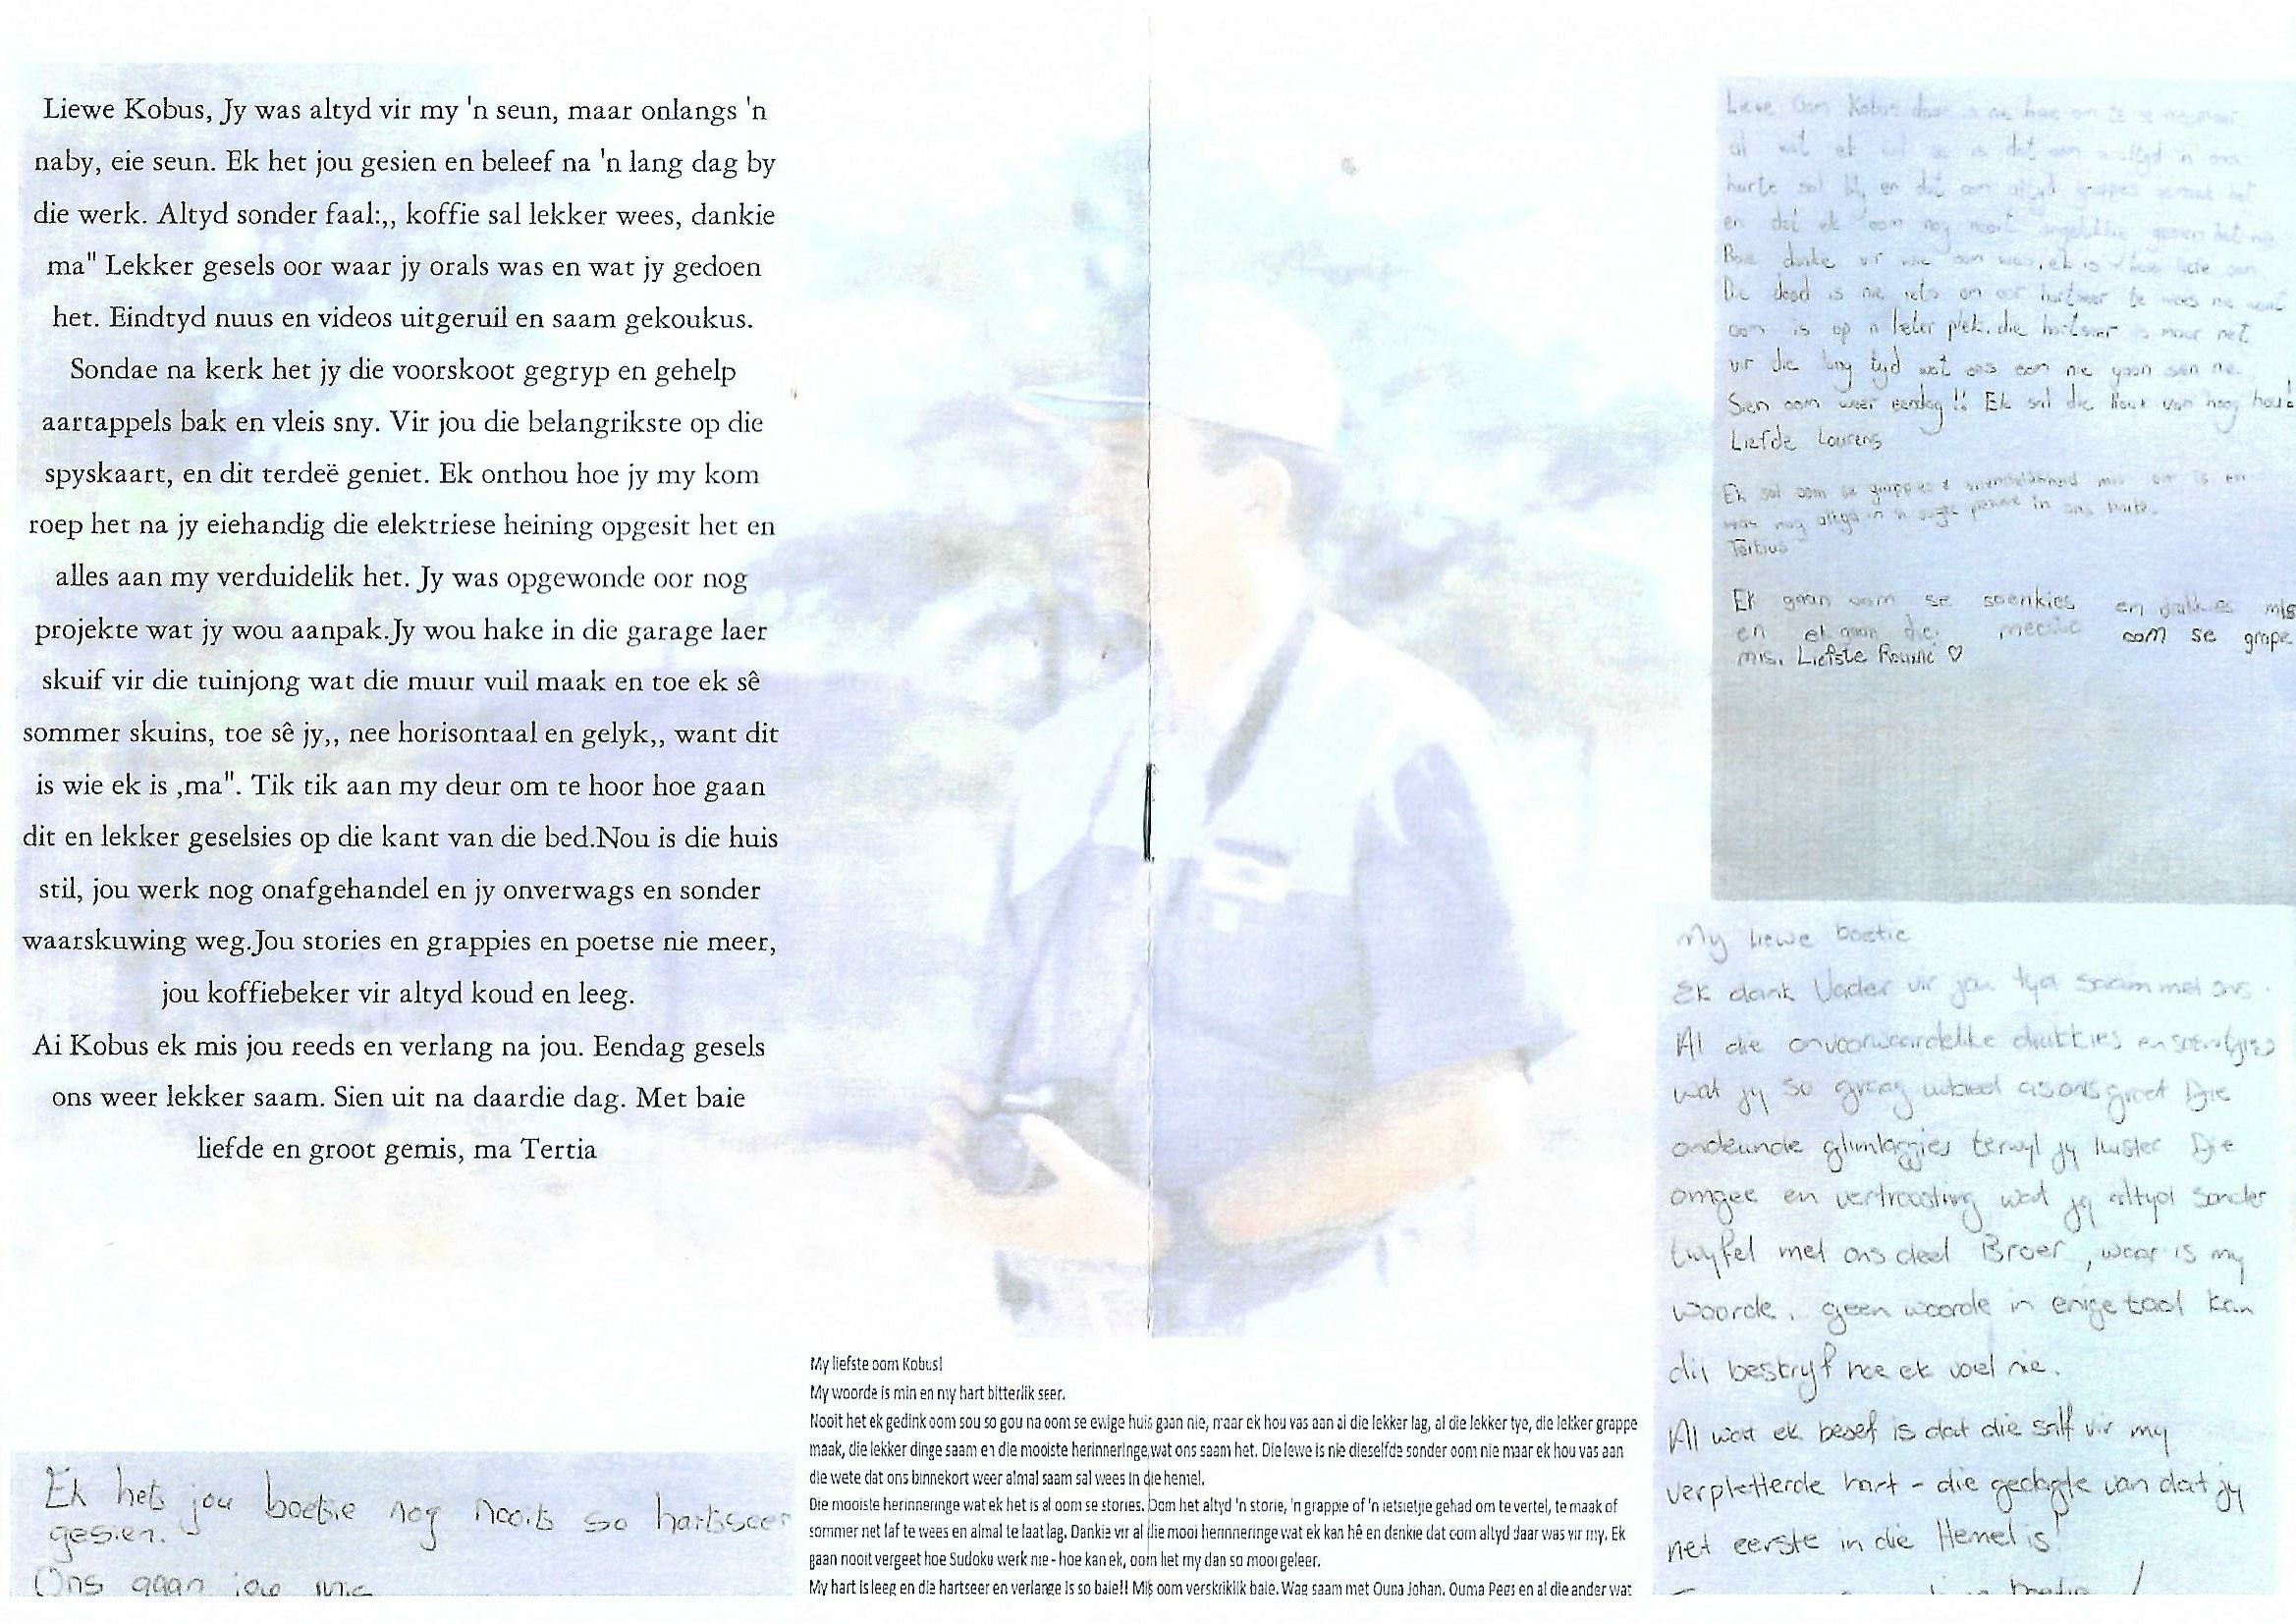 Liewe Kobus, Jy was altyd vir my 'n seun, maar onlangs 'n
naby, eie seun. Ek het jou gesien en beleef na 'n lang dag by
die werk. Altyd sonder faal:,, koffie sal lekker wees, dankie
ma" Lekker gesels oor waar jy orals was en wat jy gedoen
het. Eindtyd nuus en videos uitgeruil en saam gekoukus.
Sondae na kerk het jy die voorskoot gegryp en gehelp
aartappels bak en vleis sny. Vir jou die belangrikste op die
spyskaart, en dit terdeë geniet. Ek onthou hoe jy my kom
roep het na jy eiehandig die elektriese heining opgesit het en
alles aan my verduidelik het. Jy was opgewonde oor nog
projekte wat jy wou aanpak.Jy wou hake in die garage laer
skuif vir die tuinjong wat die muur vuil maak en toe ek sê
sommer skuins, toe sê jy,, nee horisontaal en gelyk,, want dit
is wie ek is ,ma". Tik tik aan my deur om te hoor hoe gaan
dit en lekker geselsies op die kant van die bed.Nou is die huis
stil, jou werk nog onafgehandel en jy onverwags en sonder
waarskuwing weg.Jou stories en grappies en poetse nie meer,
jou koffiebeker vir altyd koud en leeg.
Ai Kobus ek mis jou reeds en verlang na jou. Eendag gesels
ons weer lekker saam. Sien uit na daardie dag. Met baie
liefde en groot gemis, ma Tertia
Ek het jou boetie nog nooit so hartseer
gesien.
Ons gaan jou
My liefste oom Kobus!
My woorde is min en my hart bitterlik seer.
Nooit het ek gedink oom sou so gou na oom se ewige huis gaan nie, maar ek hou vas aan al die lekker lag, al die lekker tye, die lekker grappe
maak, die lekker dinge saam en die mooiste herinneringe wat ons saam het. Die lewe is nie dieselfde sonder oom nie maar ek hou vas aan
die wete dat ons binnekort weer almal saam sal wees in die hemel.
Die mooiste herinneringe wat ek het is al oom se stories. Oom het altyd 'n storie, 'n grappie of 'n ietsietjie gehad om te vertel, te maak of
sommer net laf te wees en almal te laat lag. Dankie vir al die mooi herinneringe wat ek kan hê en dankie dat oom altyd daar was vir my. Ek
gaan nooit vergeet hoe Sudoku werk nie - hoe kan ek, oom het my dan so mooi geleer.
My hart is leeg en die hartseer en verlange is so baie!! Mis oom verskriklik baie. Wag saam met Oupa Johan, Ouma Pees en al die ander wat
Liewe Oom Kobus daar is nie hoe om te sê
al wat ek wil sê is dat oom altyd in ons
harte sal bly en dat oom altyd grappies gemaak het
en dat ek oom nog nooit ongelukkig gesien het nie
Baie dankie vir wie oom was, ek is lief
Die dood is nie iets om oor hartseer te wees nie want
oom is op n beter plek. die hartseer is maar net
vir die lang tyd wat ons oom nie gaan sien nie.
Sien oom weer eendag!! Ek sal die van hoog hou!
Liefde Lourens
Ek sal oom se grappies & vriendelikheid mis oom is en
was nog altyd in n plekkie in ons harte.
Tertius
Ek gaan oom se soenkies en drukkies mis
en ek gaan die meeste oom se grapie
mis. Liefste ♡
My liewe boetie
Ek dank Vader vir jou tyd saam met ons.
Al die onvoorwaardelike drukkies en soentjies
wat jy so graag uitdeel as ons groet Die
ondeunde glimlaggies terwyl jy luister Die
omgee en vertroosting wat jy altyd sonder
twyfel met ons deel Broer, waar is my
woorde, geen woorde in enige taal kan
dit beskryf hoe ek voel nie.
Al wat ek besef is dat die salf vir my
verpletterde hart - die gedagte van dat jy
net eerste in die Hemel is!
boetie !